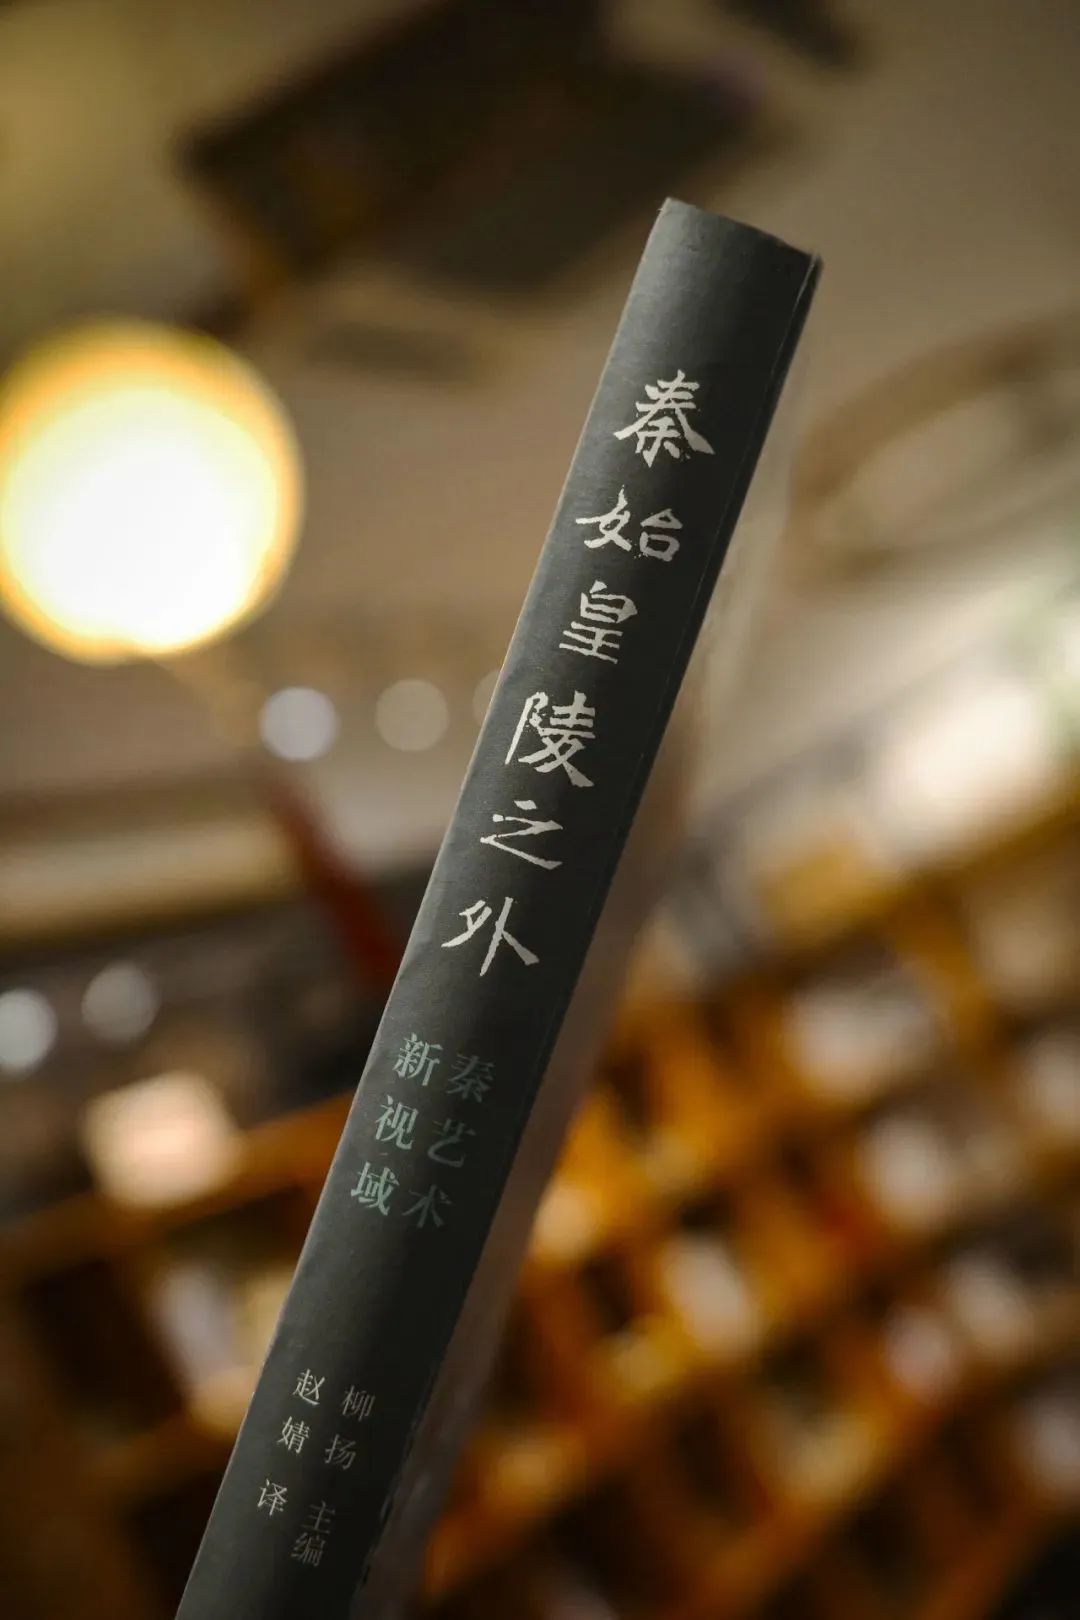 秦始皇陵之外
秦艺术
新视域
柳扬 主编
赵婧 译